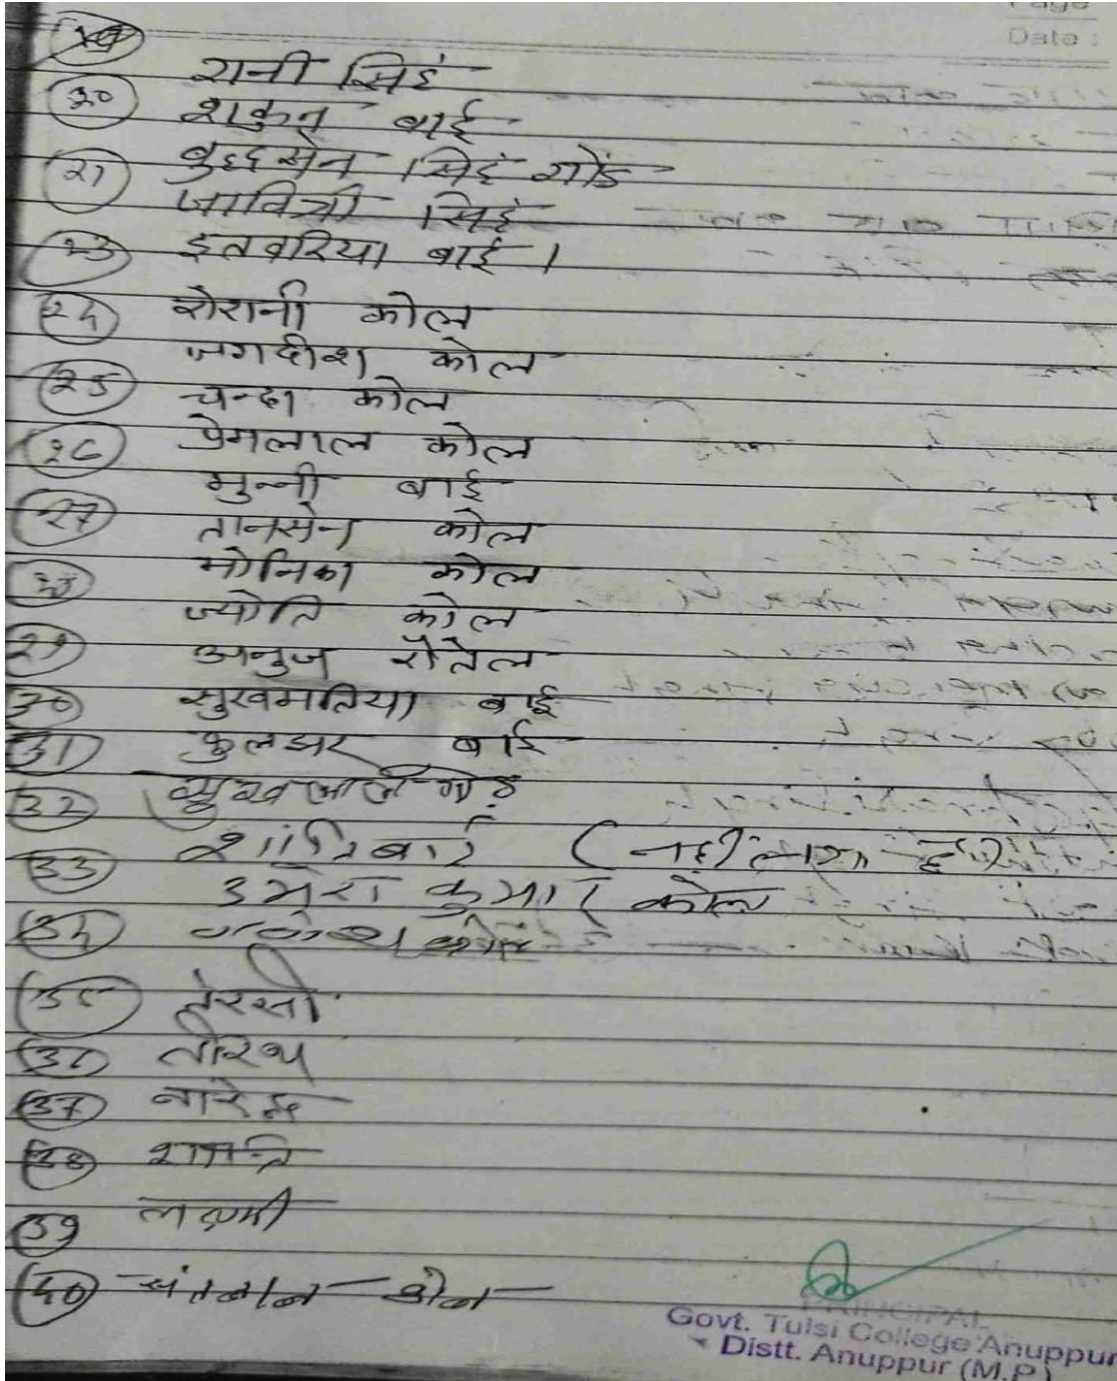 Page
Date :
रानी सिहं
२० शकुन बाई
२१ बुध्दसेन सिहं गोंड
जावित्री सिहं
२३ इतवरिया बाई ।
२४ शेरानी कोल
जगदीश कोल
२५ चन्दा कोल
२६ प्रेमलाल कोल
मुन्नी बाई
२७ तानसेन कोल
मोनिका कोल
ज्योति कोल
२९ अनुज रौतेल
३० सुखमतिया बाई
31 फुलझर बाई
32 सुखलाल गोड़
शांति बाई (नही लगा है)
33 उमेश कुमार कोल
34 कोल
35 तेरसी
36 तीरथ
37 नारेन्द्र
38 शान्ति
39 लक्ष्मी
40 संतलाल कोल
PRINCIPAL
Govt. Tulsi College Anuppur
Distt. Anuppur (M.P.)